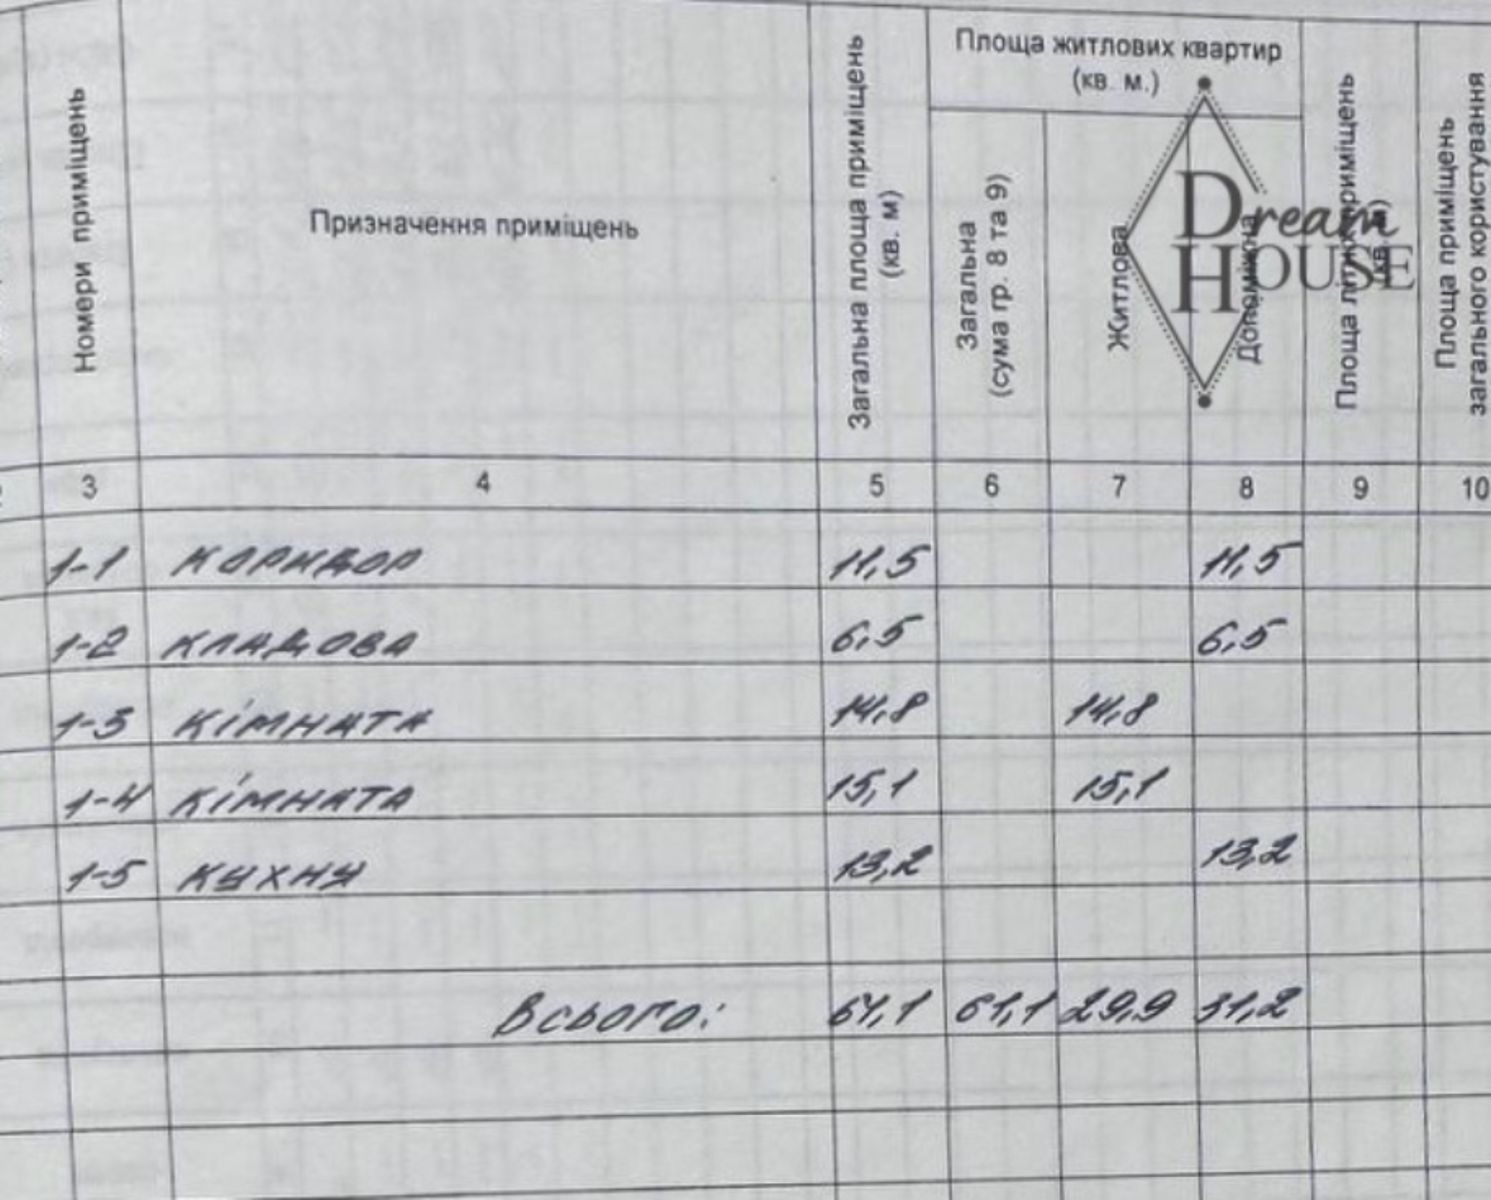 Номери приміщень
Призначення приміщень
Загальна площа приміщень
(кв. м)
Площа житлових квартир
(кв. м.)
Загальна
(сума гр. 8 та 9)
Житлова
Допоміжна
Площа літніх приміщень
(кв. м)
Площа приміщень
загального користування
Dream
HOUSE
3 4 5 6 7 8 9 10
1-1 коридор 11,5 11,5
1-2 кладова 6,5 6,5
1-3 кімната 14,8 14,8
1-4 кімната 15,1 15,1
1-5 кухну 13,2 13,2
Всього: 61,1 61,1 29,9 31,2